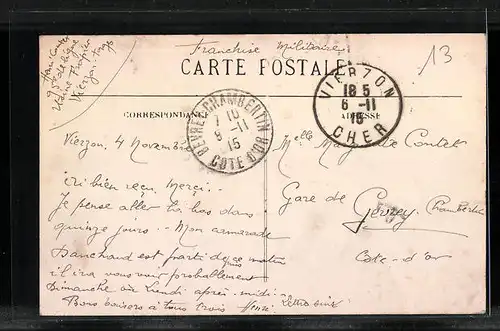 Henri Contet
95e de ligne
Usine Thuvier
Vierzon
Franchise Militaire
13
CARTE POSTALE
CORRESPONDANCE
ADRESSE
GEVREY-CHAMBERTIN
7 10
8 -11
15
COTE D'OR
VIERZON
18 5
6 -11
15
CHER
Vierzon, 4 Novembre
Melle Marguerite Contet
Gare de Gevrey-Chambertin
Côte-d'or
ici bien reçu, Merci.
Je pense aller là bas dans
quinze jours. Mon camarade
est parti ce matin
il ira vous voir probablement
Dimanche ou Lundi après-midi.
Bons baisers à tous trois Henri